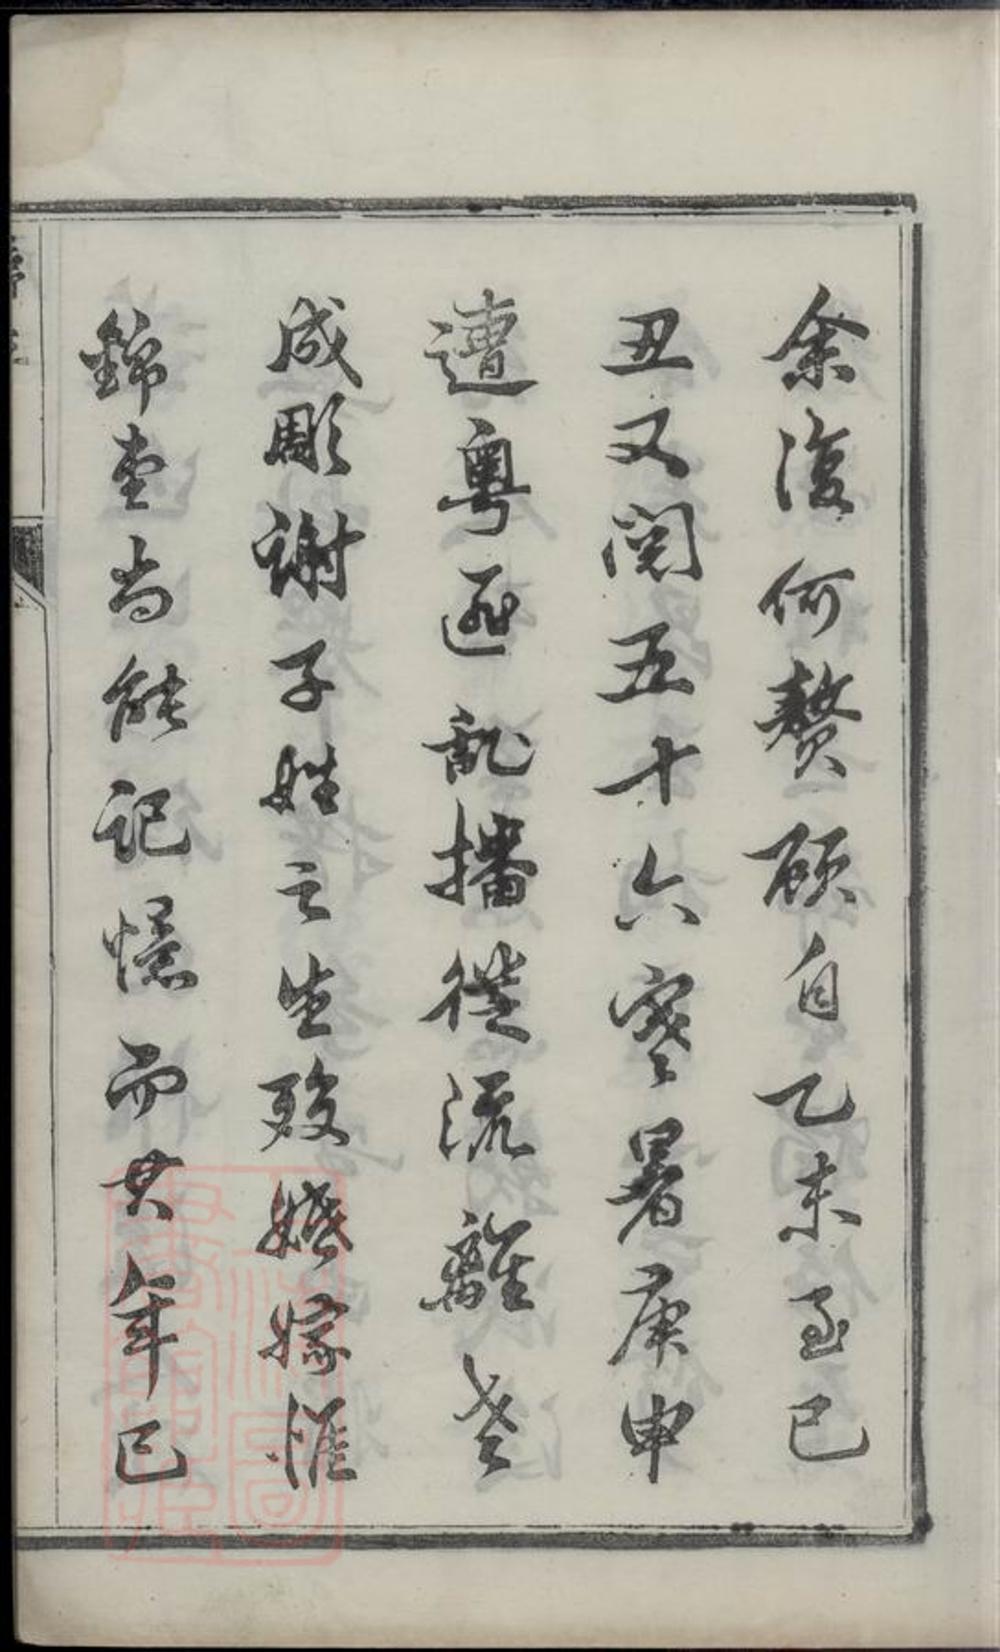 余復何贅顧自乙未至己
丑又閱五十六寒暑庚申
遭粵逆亂播徙流離老
成彫謝子姓之生歿婚嫁惟
錦堂尚能記憶而其年已